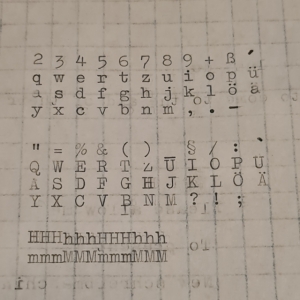 2 3 4 5 6 7 8 9 + ß ´
q w e r t z u i o p ü
a s d f g h j k l ö ä
y x c v b n m , . -
" = % & ( ) § / : `
Q W E R T Z U I O P U
A S D F G H J K L Ö Ä
Y X C V B N M ? ! ;
HHHhhhHHHhhh
mmmMMMmmmMMM